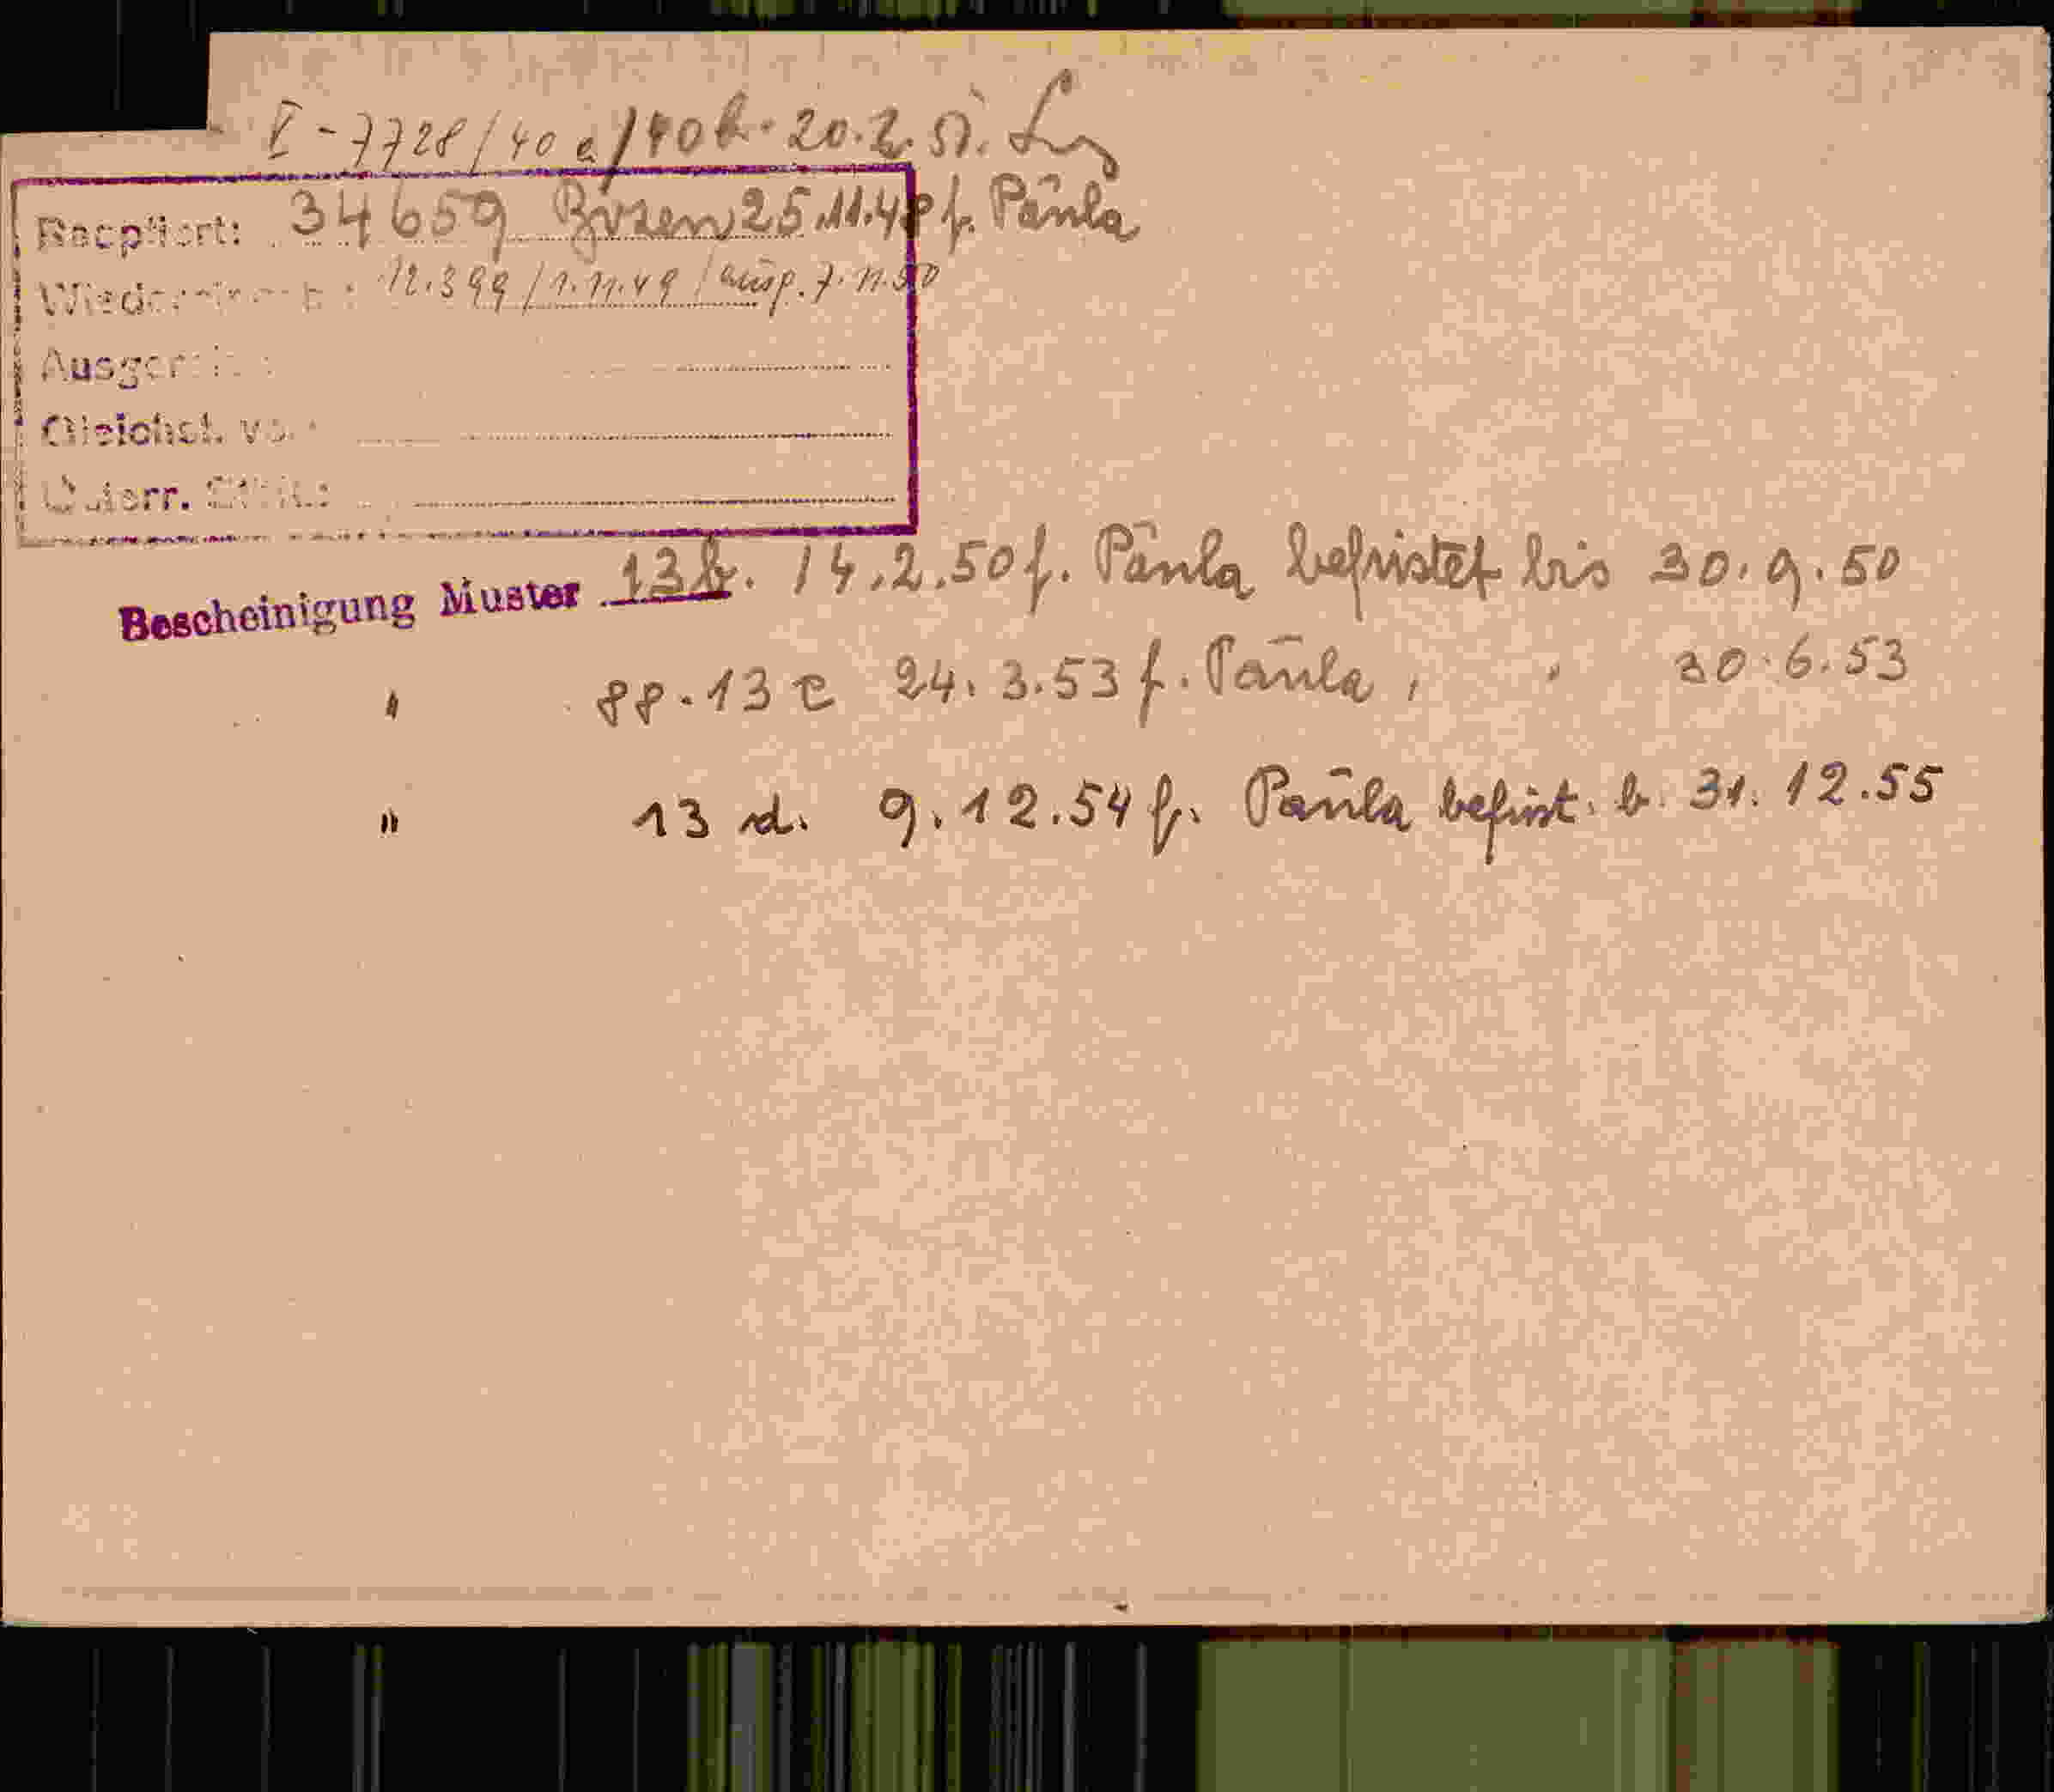 V - 7728/40 a/40b. 20.2.51.
Reoptiert: 34659 Bozen 25.11.48 f. Paula
12.399/1.11.49/ausg. 7.11.50
Gleichst. v.
Österr.
Bescheinigung Muster 13b. 14.2.50 f. Paula befristet bis 30.9.50
" 88.13 c 24.3.53 f. Paula " " 30.6.53
" 13 d. 9.12.54 f. Paula befrist. b. 31.12.55